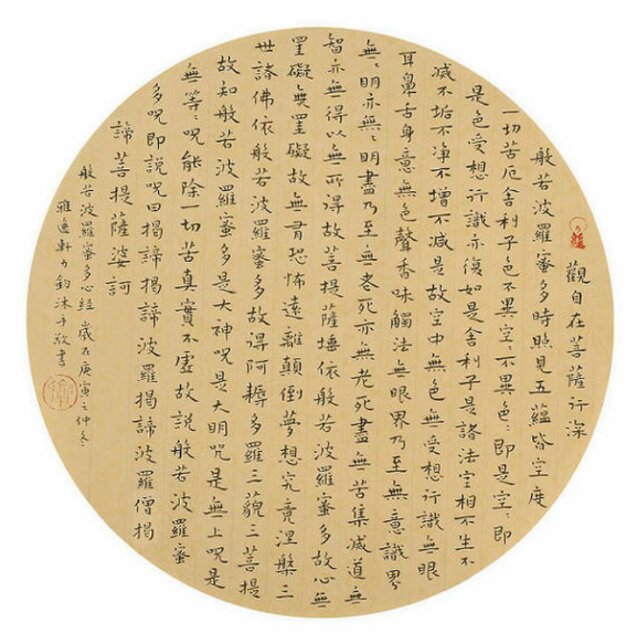 觀自在菩薩行深
般若波羅蜜多時照見五蘊皆空度
一切苦厄舍利子色不異空〻不異色〻即是空〻即
是色受想行識亦復如是舍利子是諸法空相不生不
滅不垢不淨不增不減是故空中無色無受想行識無眼
耳鼻舌身意無色聲香味觸法無眼界乃至無意識界
無〻明亦無〻明盡乃至無老死亦無老死盡無苦集滅道無
智亦無得以無所得故菩提薩埵依般若波羅蜜多故心無
罣礙無罣礙故無有恐怖遠離顛倒夢想究竟涅槃三
世諸佛依般若波羅蜜多故得阿耨多羅三藐三菩提
故知般若波羅蜜多是大神呪是大明呪是無上呪是
無等〻呪能除一切苦真實不虛故說般若波羅蜜
多呪即說呪曰揭諦揭諦波羅揭諦波羅僧揭
諦菩提薩婆訶
般若波羅蜜多心經歲在庚寅之仲冬
雅逸軒鈞沐手敬書